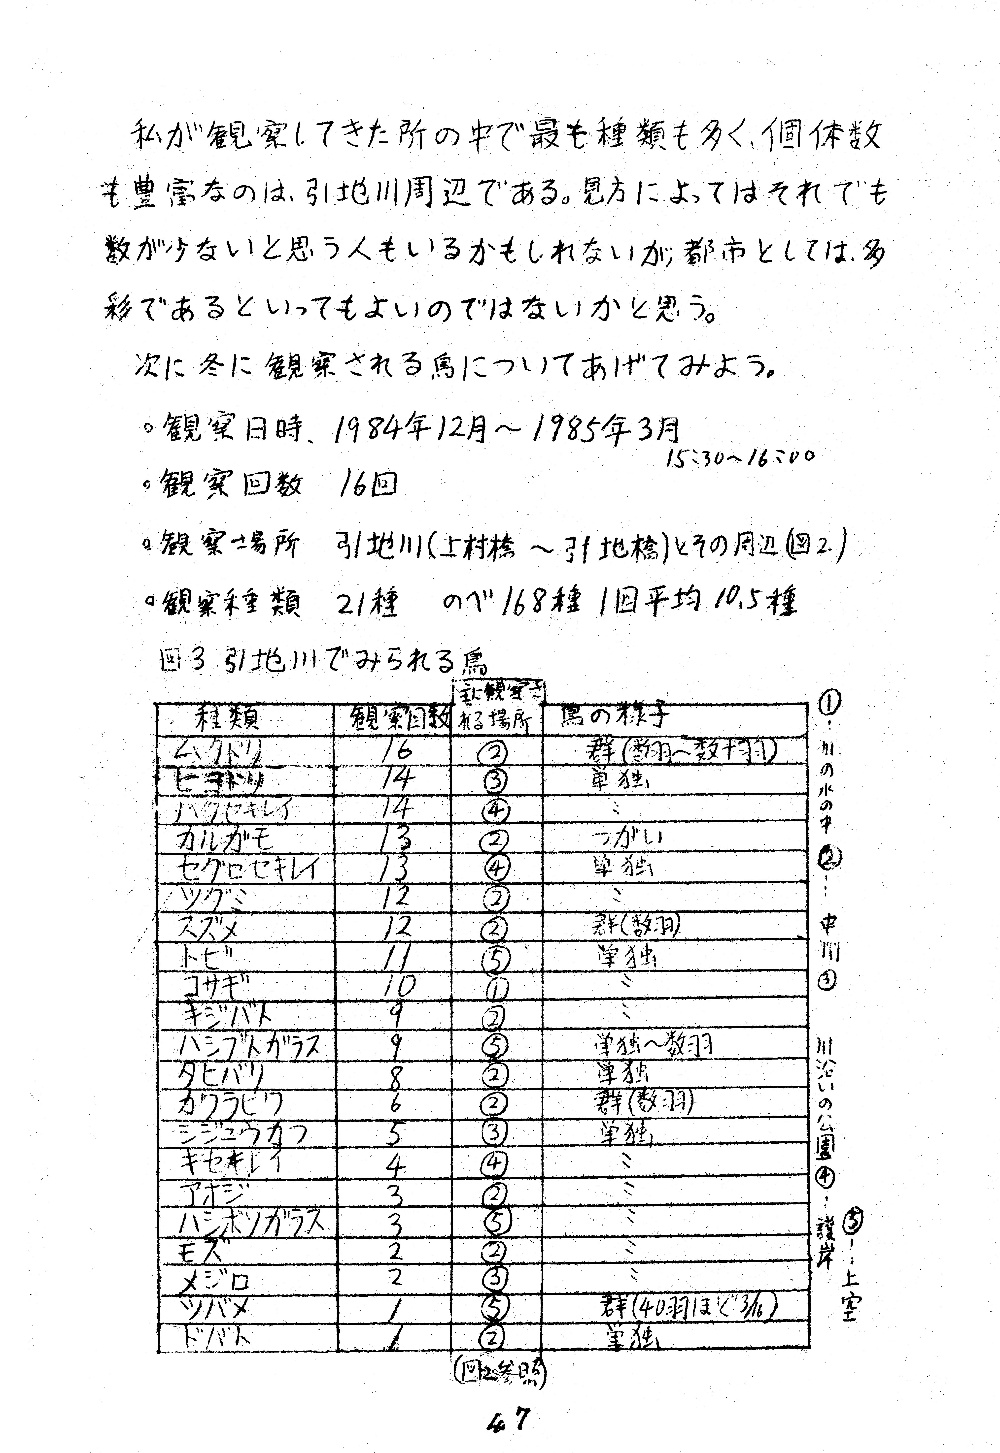 私が観察してきた所の中で最も種類も多く、個体数
も豊富なのは、引地川周辺である。見方によってはそれでも
数が少ないと思う人もいるかもしれないが、都市としては、多
彩であるといってもよいのではないかと思う。
次に冬に観察される鳥についてあげてみよう。
○観察日時、1984年12月〜1985年3月
15:30〜16:00
○観察回数 16回
○観察場所 引地川(上村橋〜引地橋)とその周辺(図2)
○観察種類 21種 のべ168種 1回平均10.5種
図3 引地川でみられる鳥
種類 観察回数 主に観察される場所 鳥の様子
ムクドリ 16 ② 群(数羽〜数十羽)
ヒヨドリ 14 ③ 単独
ハクセキレイ 14 ④ 〃
カルガモ 13 ② つがい
セグロセキレイ 13 ④ 単独
ツグミ 12 ② 〃
スズメ 12 ② 群(数羽)
トビ 11 ⑤ 単独
コサギ 10 ① 〃
キジバト 9 ② 〃
ハシブトガラス 9 ⑤ 単独〜数羽
タヒバリ 8 ② 単独
カワラヒワ 6 ② 群(数羽)
シジュウカラ 5 ③ 単独
キセキレイ 4 ④ 〃
アオジ 3 ② 〃
ハシボソガラス 3 ⑤ 〃
モズ 2 ② 〃
メジロ 2 ③ 〃
ツバメ 1 ⑤ 群(40羽ほど3/16)
ドバト 1 ② 単独
(図2参照)
①…川の水の中 ②… 中川 ③ 川沿いの公園 ④…護岸
⑤…上空
47